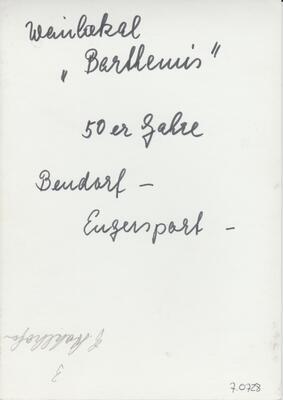 Weinlokal
„Barthemis"
50er Jahre
Bendorf –
Engersport –
3
7.0728